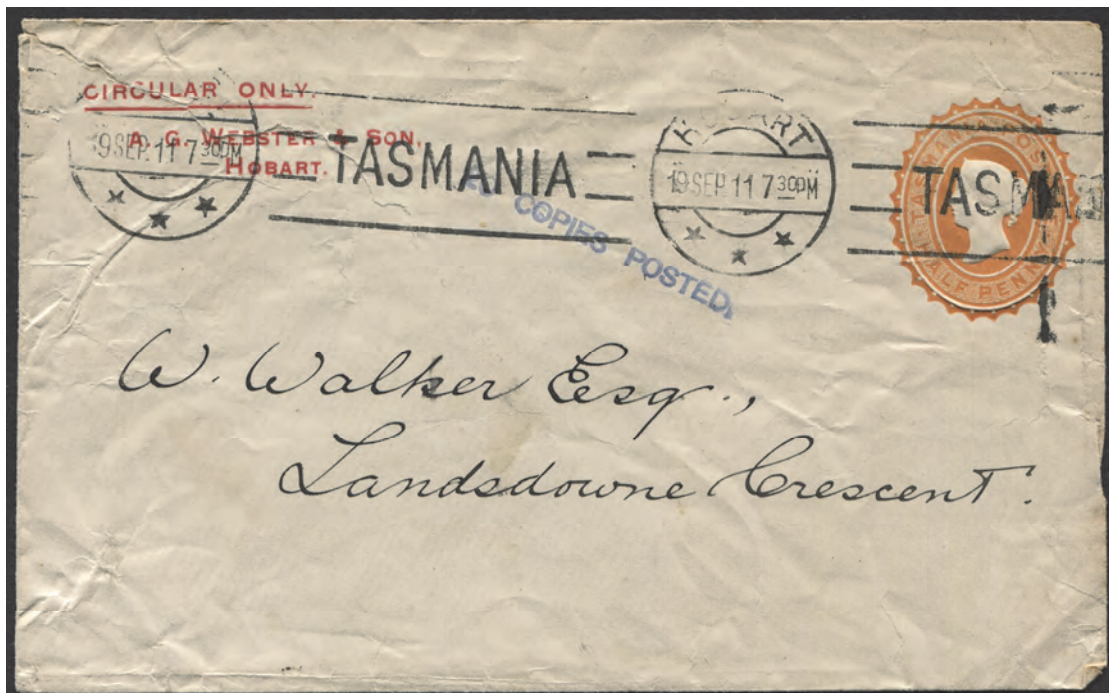 CIRCULAR ONLY.
A. G. WEBSTER & SON,
HOBART.
19 SEP. 11 7 30PM
TASMANIA
HOBART
19 SEP 11 7 30PM
TASMA
COPIES POSTED.
TASMANIA POS
HALF PENN
W. Walker Esq.,
Landsdowne Crescent.